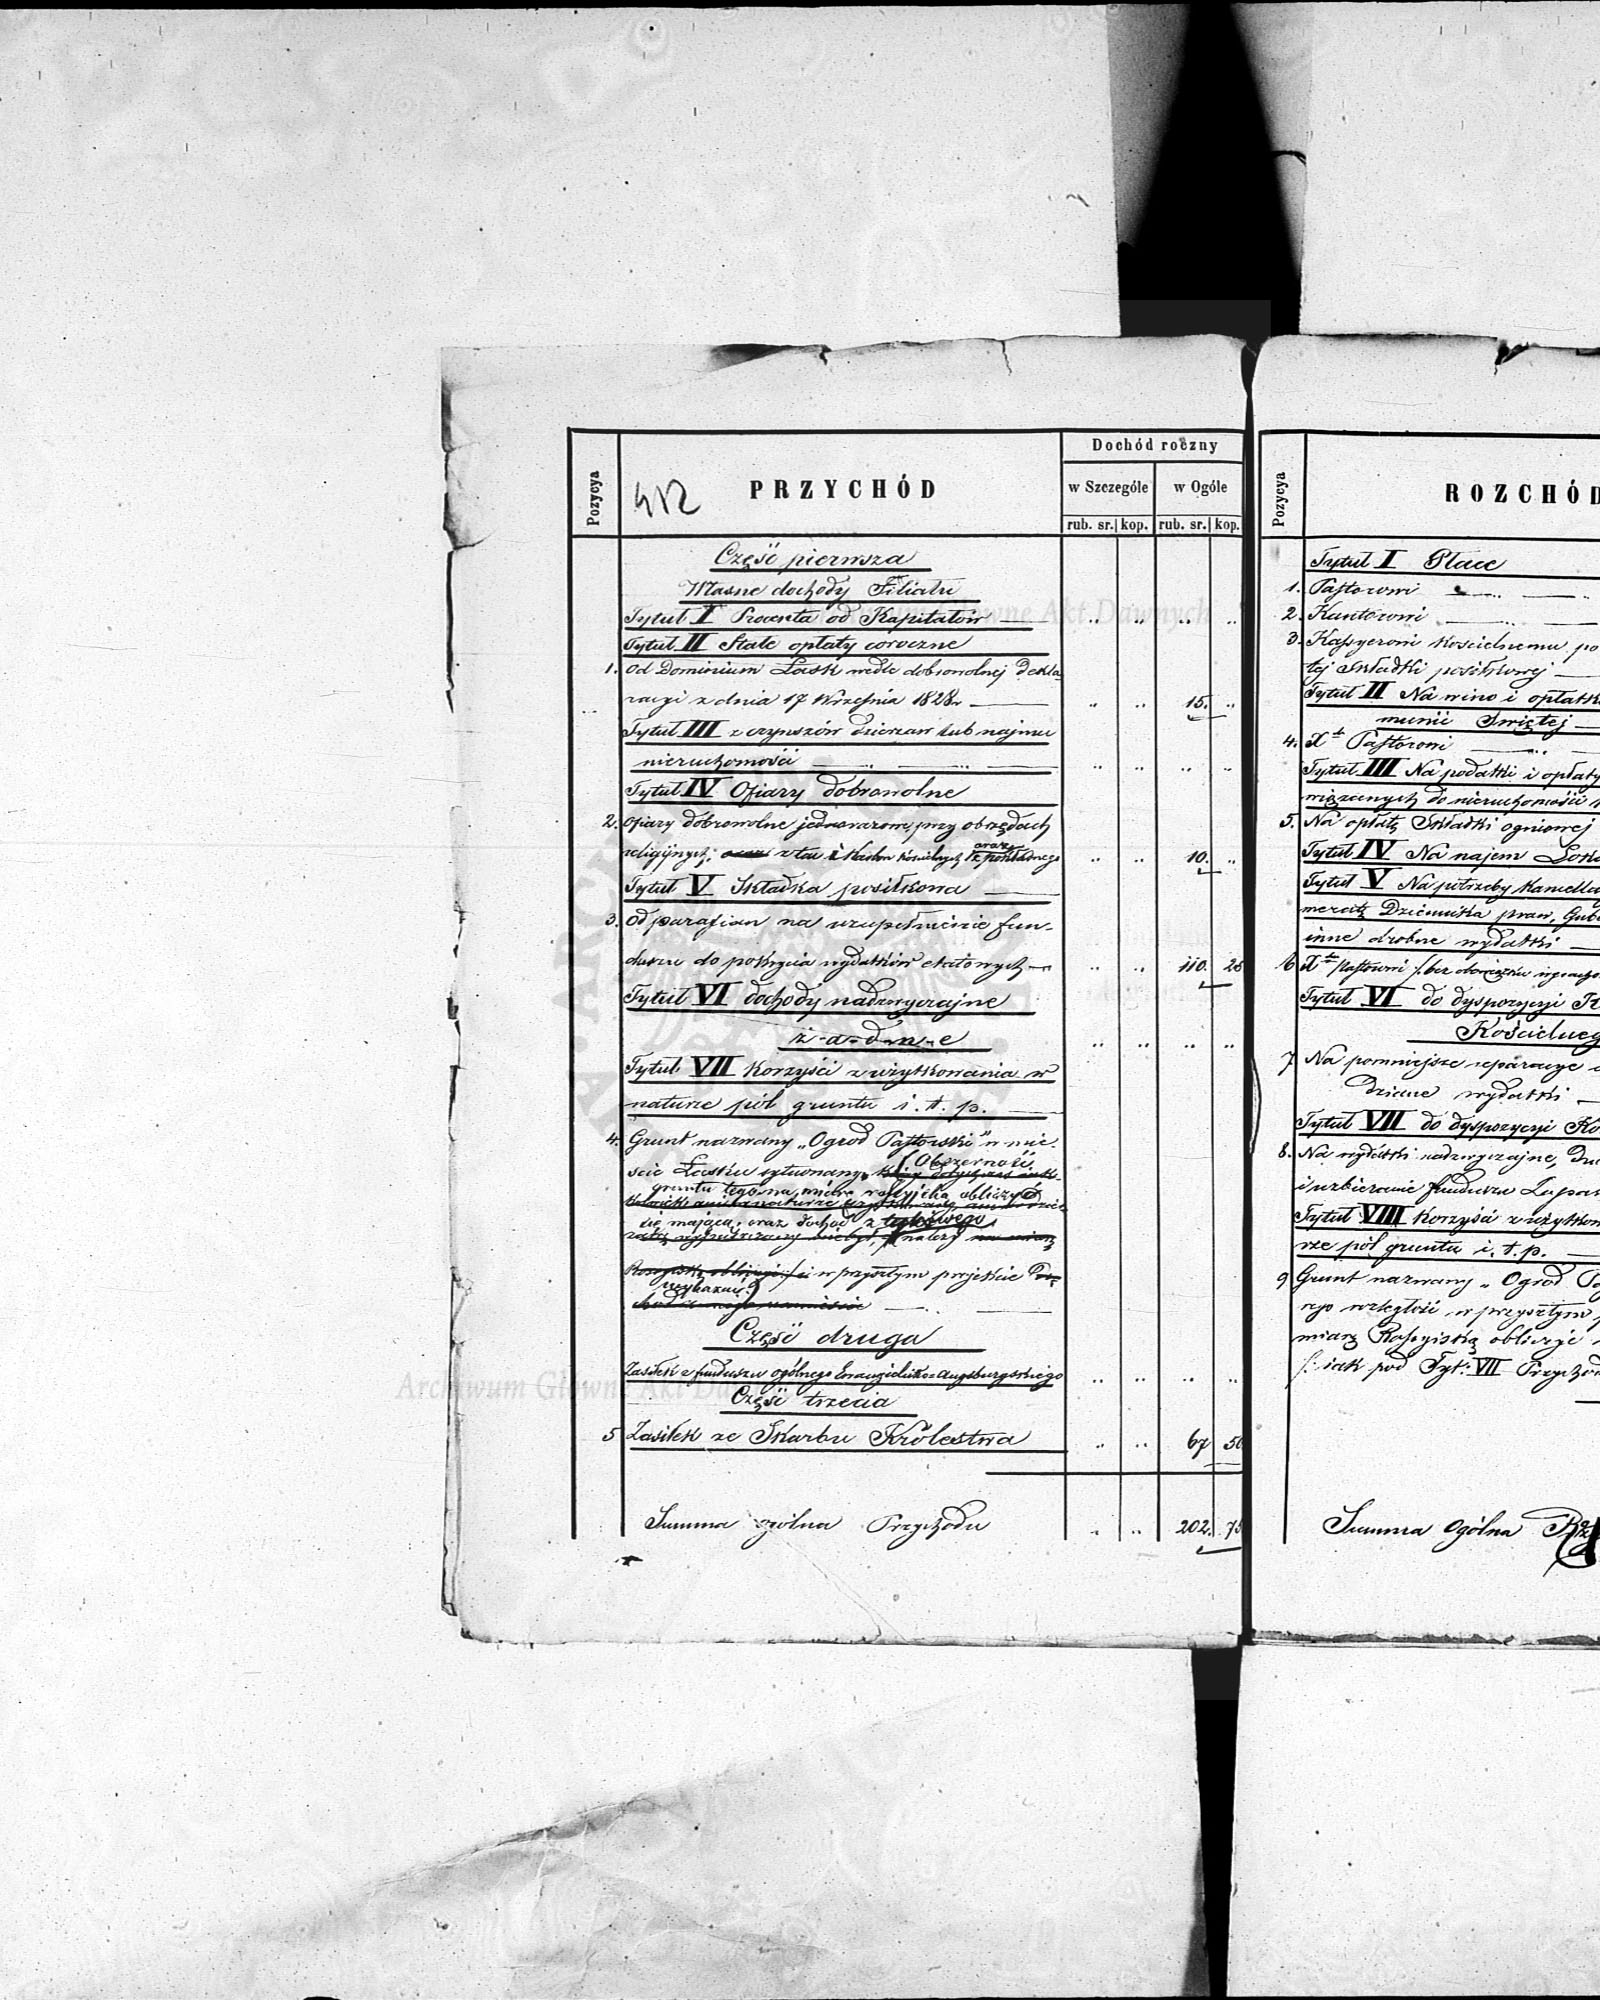 Dochód roczny
Pozycya
412
PRZYCHÓD
w Szczególe
w Ogóle
rub. sr. kop.
rub. sr. kop.
Część pierwsza
Własne dochody Filiału
Tytuł I Procenta od Kapitałów — .. .. .. ..
Tytuł II Stałe opłaty coroczne
1. Od Dominium Łask wedle dobrowolnej Dekla-
racyi z dnia 17 Września 1828r — .. .. 15. ..
Tytuł III z czynszów dzierzaw lub najmu
nieruchomości — .. — .. .. .. ..
Tytuł IV Ofiary dobrowolne
2. Ofiary dobrowolne jednorazowe, przy obrzędach
oraz
religijnych, oraz z tac i Karbon Kościelnych z pokładnego .. .. 10. ..
Tytuł V Składka posiłkowa —
3. Od parafian na uzupełnienie fun-
duszu do pokrycia wydatków etatowych — .. .. 110. 25
Tytuł VI dochody nadzwyczajne
ż-a-d-n-e .. .. .. ..
Tytuł VII Korzyści z użytkowania w
naturze pól gruntu i. t. p. —
4. Grunt nazwany „Ogrod Pastorski" w mie-
Obszerność
ście Łasku sytuowany,
gruntu tego na miarę rossyjską obliczyć
się mająca, oraz dochód z takowego
należy
i w przyszłym projekcie
wykazać
Część druga
Zasiłek z funduszu ogólnego Ewangielicko=Augsburgskiego .. .. .. ..
Część trzecia
5 Zasiłek ze Skarbu Królestwa .. .. 67 50
Summa ogólna Przychodu .. .. 202. 75
Pozycya
ROZCHÓD
Tytuł I Płace
1. Pastorowi — .. — ..
2. Kantorowi — .. —
3. Kassyerowi Kościelnemu po
tej Składki posiłkowej —
Tytuł II Na wino i opłatk
munii Swiętej —
4. Xu Pastorowi — .. —
Tytuł III Na podatki i opłaty
wiązanych do nieruchomości
5. Na opłatę Składki ogniowej
Tytuł IV Na najem Loka
Tytuł V Na potrzeby Kancella
meratę Dziennika praw, Gube
inne drobne wydatki —
6 Xu Pastorowi /: bez obowiązku
Tytuł VI do dyspozycyi
Kościelneg
7 Na pomniejsze reparacye
dziane wydatki —
Tytuł VII do dyspozycyi Ko
8. Na wydatki nadzwyczajne,
i uzbieranie funduszu Zapas
Tytuł VIII Korzyści z użytkow
rze pól gruntu i. t. p. —
9 Grunt nazwany „Ogrod Pa
rego rozległość w przyszłym
miarę Rossyiską obliczyć
/: iak pod Tyt: VII Przycho
Summa Ogólna
Archiwum Główne Akt Dawnych